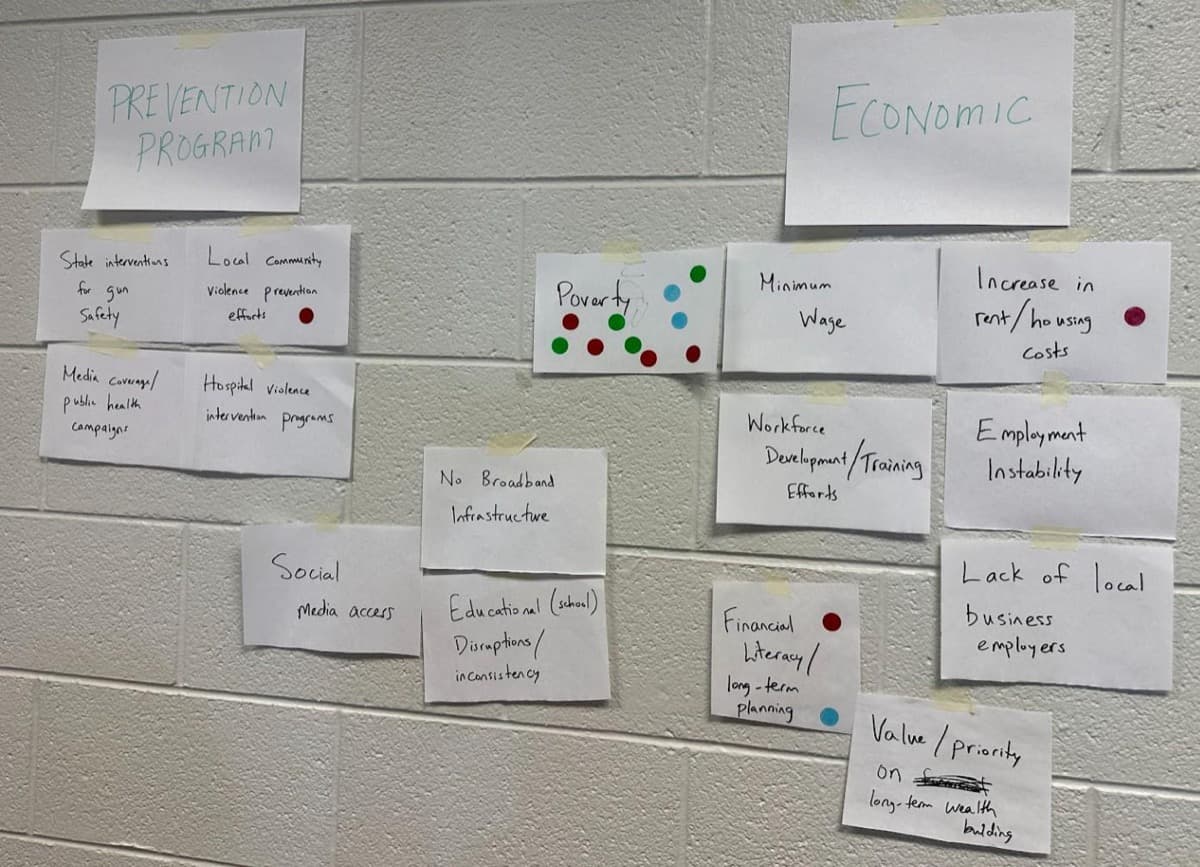 PREVENTION
PROGRAM
State interventions
for gun
Safety
Local Community
Violence prevention
efforts
Media coverage/
public health
campaigns
Hospital Violence
intervention programs
Social
Media access
No Broadband
Infrastructure
Educational (school)
Disruptions/
inconsistency
ECONOMIC
Poverty
Minimum
Wage
Increase in
rent/housing
costs
Workforce
Development/Training
Efforts
Employment
Instability
Lack of local
business
employers
Financial
Literacy/
long-term
planning
Value/priority
on
long-term wealth
building